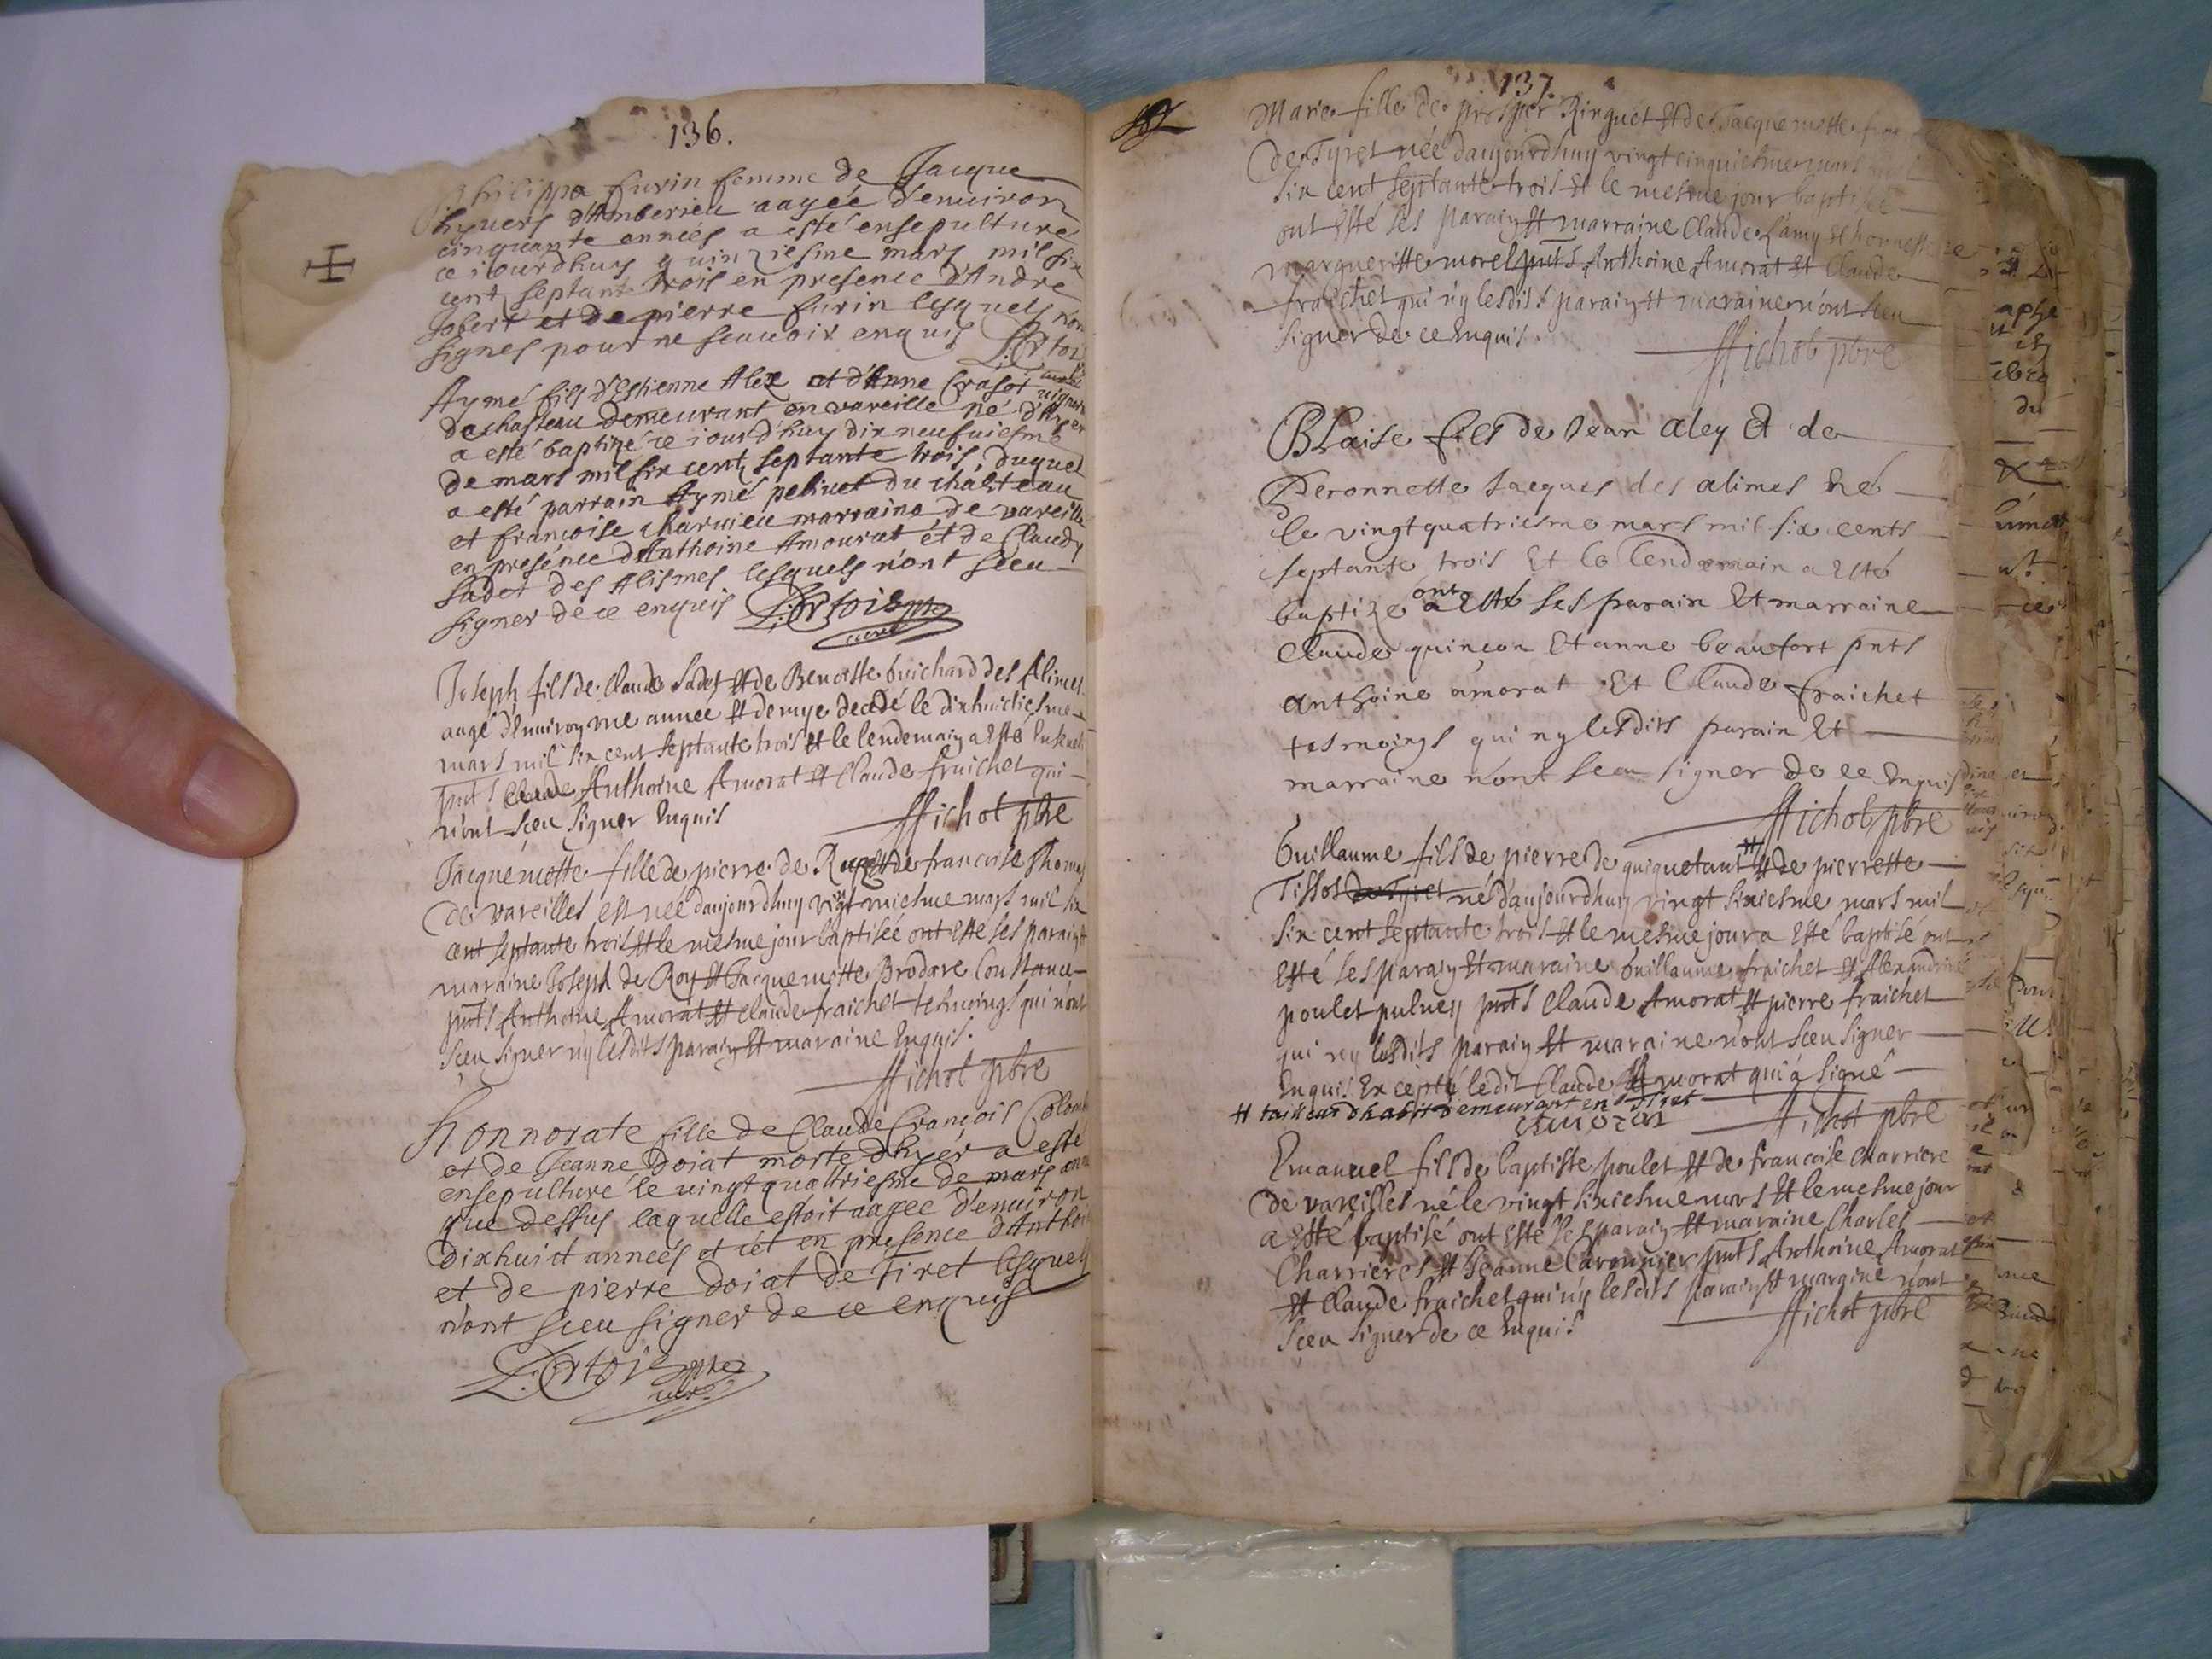 136.
Philippa furin femme de Jacque
hyvers d'Amberieu aagée d'enuiron
cinquante années a esté ensepulture
ce iourdhuy quinziesme mars mil six
cent septante trois en presence d'Andre
Jobert et de pierre furin lesquels n'on
signes pour ne scauoir enquis
Aymé fils d'Estienne Alex et d'Anne Crasot
de chasteau demeurant en vareille né d'hyer
a esté baptizé ce iourd'huy dix neufuiesme
de mars mil six cent septante trois, duquel
a esté parrain Aymé pelivet du château
et françoise charuieu marraine de vareille
en presénce d'Anthoine Amourat et de Claudy
Sadet des Alismes lesquels n'ont sceu
signer de ce enquis
Joseph fils de Claude Sadet et de Benoitte buichard des Alimes
aagé d'enuiron vne année et demye decedé le dixhuictiesme
mars mil six cent septante trois et le lendemain a esté
pnts Anthoine Amorat et Claude fraichet qui
n'ont sceu signer Enquis
Michot pbre
Jacquemette fille de pierre de Roy et de francoise Thomas
de vareilles est née daujourdhuy vingt uniesme mars mil six
cent septante trois et le mesme jour baptisée ont esté ses parain et
maraine Joseph de Roy et Jacquemette Brodare Constance
pnts Anthoine Amorat et Claude fraichet tesmoings qui n'ont
sceu signer n'y lesdits parain et maraine Enquis.
Michot pbre
Honnorate fille de Claude François Colomb
et de Jeanne Doiat morte d'hyér a esté
ensepulturé le uingt quattriesme de mars
que dessus laquelle estoit aagee d'enuiron
dixhuict années et cét en presence d'Anthoi
et de pierre Doiat de Tiret lesquels
n'ont sceu signer de ce enquis
137.
Marie fille de prosper Ringuet et de Jacquemette
de Tyret née daujourdhuy vingt cinquiesme mars
six cent septante trois et le mesme jour baptisée
ont esté ses parain et marraine Claude Lamy et honneste
margueritte morel pnts Anthoine Amorat et Claude
fraichet qui n'y lesdits parain et maraine n'ont sceu
signer de ce Enquis
Michot pbre
BLaise fils de Jean aley et de
Peronnette Jacques des alimes Né
le vingt quatriesme mars mil six cents
septante trois Et le lendemain a esté
baptize ont esté ses parain Et marraine
Claude quinçon Et anne beaufort pnts
anthoine amorat Et Claude fraichet
tesmoings qui ny lesdits parain Et
marraine n'ont sceu signer de ce Enquis
Michot pbre
Guillaume fils de pierre de guiguetant # et de pierrette
Tissot de Tyret né daujourdhuy vingt sixiesme mars mil
six cent septante trois et le mesme jour a esté baptisé ont
esté ses parain et maraine Guillaume fraichet et Alexandrine
poulet pnts Claude Amorat et pierre fraichet
qui ny lesdits parain et maraine n'ont sceu signer
Enquis Excepté ledit Claude Amorat qui a signé
# tailleur dhabit demeurant en Tiret
Michot pbre
Emanuel fils de baptiste poulet et de francoise charriere
de vareilles né le vingt sixiesme mars et le mesme jour
a esté baptisé ont esté ses parain et maraine Charles
Charrieres et Jeanne Caronnier pnts Anthoine Amorat
et Claude fraichet qui n'y lesdits parain et maraine n'ont
sceu signer de ce Enquis
Michot pbre